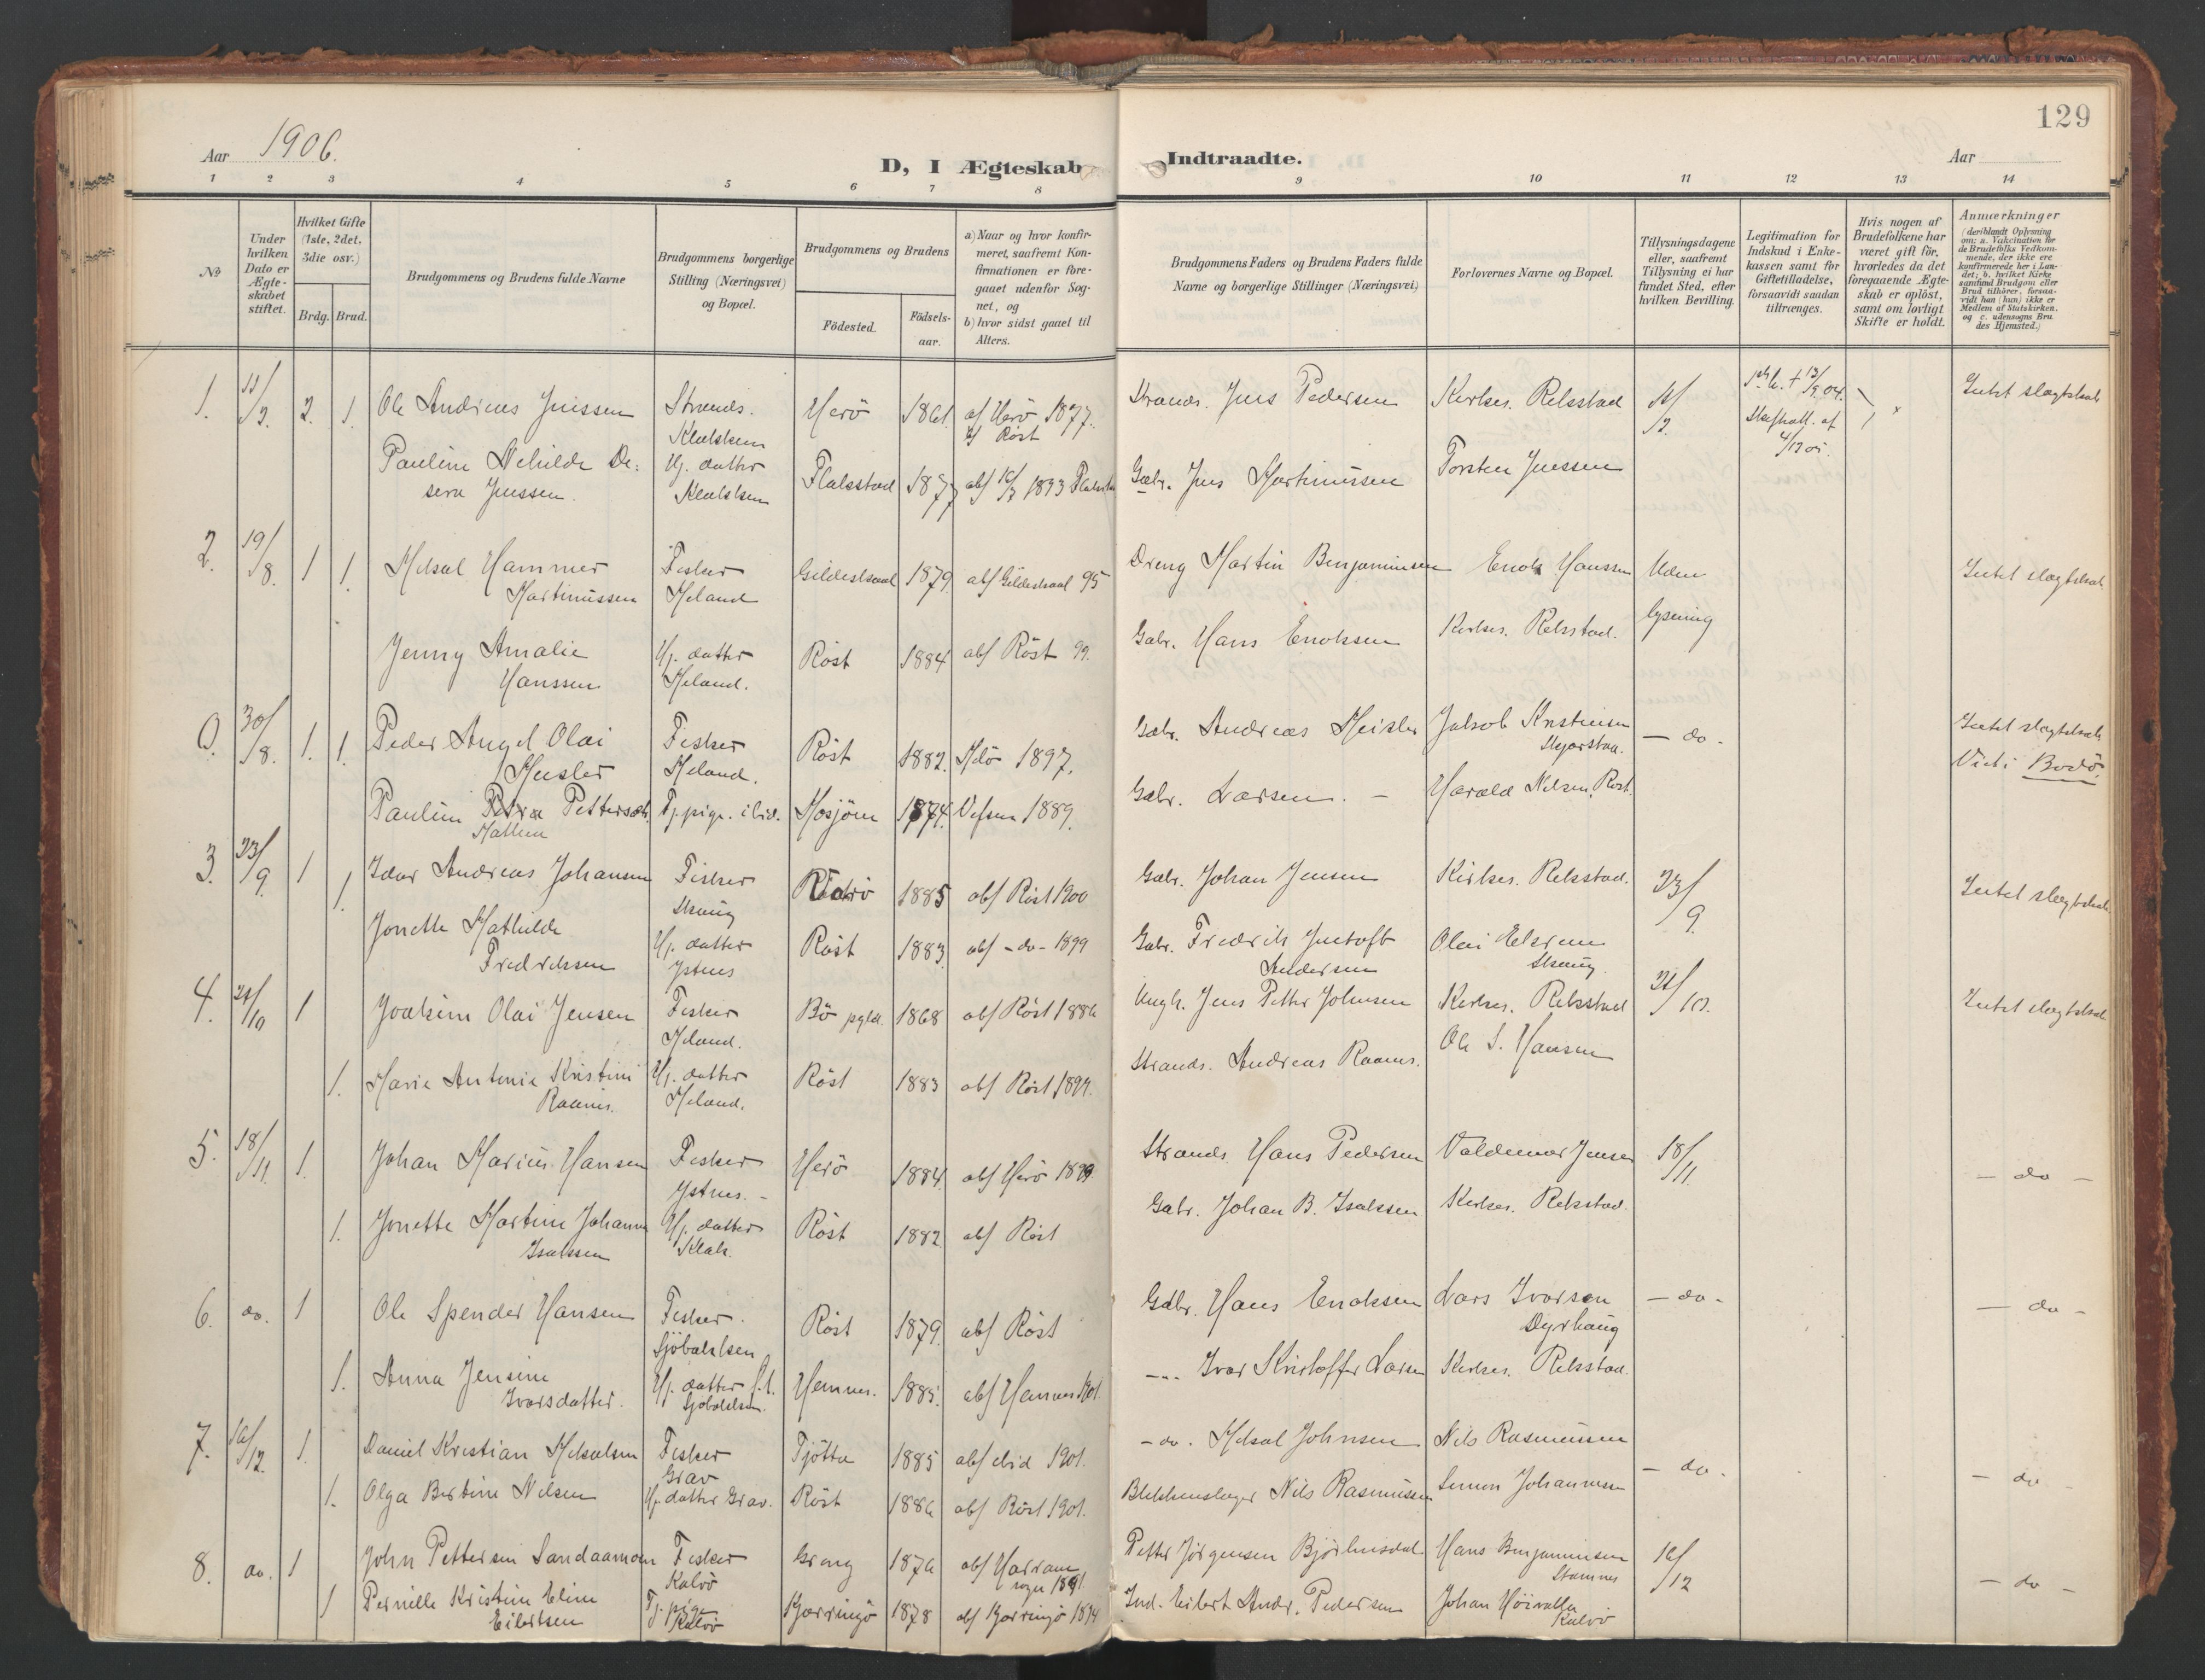 129
Aar 1906.
D, I Ægteskab
Indtraadte.
Aar
1 2 3 4 5 6 7 8 9 10 11 12 13 14
No
Under hvilken Dato er Ægteskabet stiftet.
Hvilket Gifte (1ste, 2det, 3die osv.)
Brdg. Brud.
Brudgommens og Brudens fulde Navne
Brudgommens borgerlige Stilling (Næringsvei) og Bopæl.
Brudgommens og Brudens
Födested.
Födsels-aar.
a) Naar og hvor konfirmeret, saafremt Konfirmationen er foregaaet udenfor Sognet, og
b) hvor sidst gaaet til Alters.
Brudgommens Faders og Brudens Faders fulde Navne og borgerlige Stillinger (Næringsvei)
Forlovernes Navne og Bopæl.
Tillysningsdagene eller, saafremt Tillysning ei har fundet Sted, efter hvilken Bevilling.
Legitimation for Indskud i Enkekassen samt for Giftetilladelse, forsaavidt saadan tiltrænges.
Hvis nogen af Brudefolkene har været gift för, hvorledes da det foregaaende Ægteskab er oplöst, samt om lovligt Skifte er holdt.
Anmerkninger (deriblandt Oplysning om: a. Vakcination for de Brudefolks Vedkommende, der ikke ere konfirmerede her i Landet; b. hvilket Kirkesamfund Brudgom eller Brud tilhörer, forsaavidt han (hun) ikke er Medlem af Statskirken, og c. udensogns Brudes Hjemsted.)
1. 11/2. 2. 1. Ole Andreas Jenssen Strands. Klakken Herö 1861 a/ Herö 1877. b/ Röst Strands. Jens Pedersen Kirkes. Relsstad 11/2. Intet slægtskab
Pauline Nehilde Desera Jenssen. Hj. datter Klakken Flakstad 1877 Gabr. Jens Martinussen Torsten Jenssen
2. 19/8. 1 1. Mikal Hammer Martinussen Fisker Heland Gildeskaal 1879 abf Gildeskaal 95 Dreng Martin Benjaminsen Enok Hanssen Uden lysning Intet slægtskab
Jenny Amalie Hanssen Hj. datter Heland. Röst 1884 abf Röst 99. Gabr. Hans Enoksen Kirkes. Relsstad.
0. 30/8. 1. 1. Peder Angel Olai Meisler Fisker Heland. Röst 1882. 1897. Gabr. Andreas Meisler Jakob Kristensen — do - Intet slægtskab
Pauline Petra Pettersdtr. Tj. pige. ibid. Mosjöen 1874. Vefsen 1889. Gabr. Larsen. - Harald Nilsen, Röst. Viet i Bodö.
3. 23/9. 1 1. Idar Andreas Johansen Fisker Skaug 1885 abf Röst 1900 Gabr. Johan Jensen Kirkes. Relsstad. 23/9. Intet slægtskab
Jonette Mathilde Fredriksen Hj. datter Ystnes Röst 1883 abf - do - 1899 Gabr. Fredrik Gustaft Andersen Olai Skaug.
4. 21/10 1 Joakim Olai Jensen Fisker Heland. Bö pgld. 1868 abf Röst 1886 Ungk. Jens Petter Johnsen Kirkes. Relsstad 21/10. Intet slægtskab
1. Marie Antonie Kristine Raanes. Hj. datter Heland. Röst 1883 abf Röst 1899. Strands. Andreas Raanes. Ole S. Hansen
5. 18/11. 1. Johan Marius Hansen Fisker Ystnes. - Herö 1884. abf Herö 1899. Strands Hans Pedersen Valdemar Jensen 18/11. — do —
1. Jonette Martine Johanna Isaksen Hj. datter Klak. Röst 1882 abf Röst Gabr. Johan B. Isaksen Kirkes. Relsstad.
6. do. 1 Ole Spender Hansen Fisker. Sjöbakken Röst 1879. abf Röst Gabr. Hans Enoksen Lars Ivarsen Dyrhaug — do - — do -
1. Anna Jensine Ivarsdatter. Hj. datter Sjöbakken. Hemnes. 1885. abf Hemnes 1901 --- Ivar Kristoffer Larsen Kirkes. Relsstad.
7. 16/12. 1. Daniel Kristian Mikalsen Fisker Grav Tjötta 1885 abf ibid 1901. - do. Mikal Johnsen Nils Rasmussen — do - — do
1. Olga Bertine Nilsen Hj. datter Grav. Röst 1886 abf Röst 1901. Blikkenslager Nils Rasmussen Simon Johannessen
8. do. 1 John Pettersen Sandaamoen Fisker Kalvö Grong 1876 abf Harram sogn 1891. Petter Jörgensen Hans Benjaminsen Stamnes 16/12 — do —
1 Pernille Kristine Eline Eilertsen Tj. pige Kalvö Kjerringö 1878 abf Kjerringö 1894 Ind. Eilert Andr. Pedersen Johan Kalvö